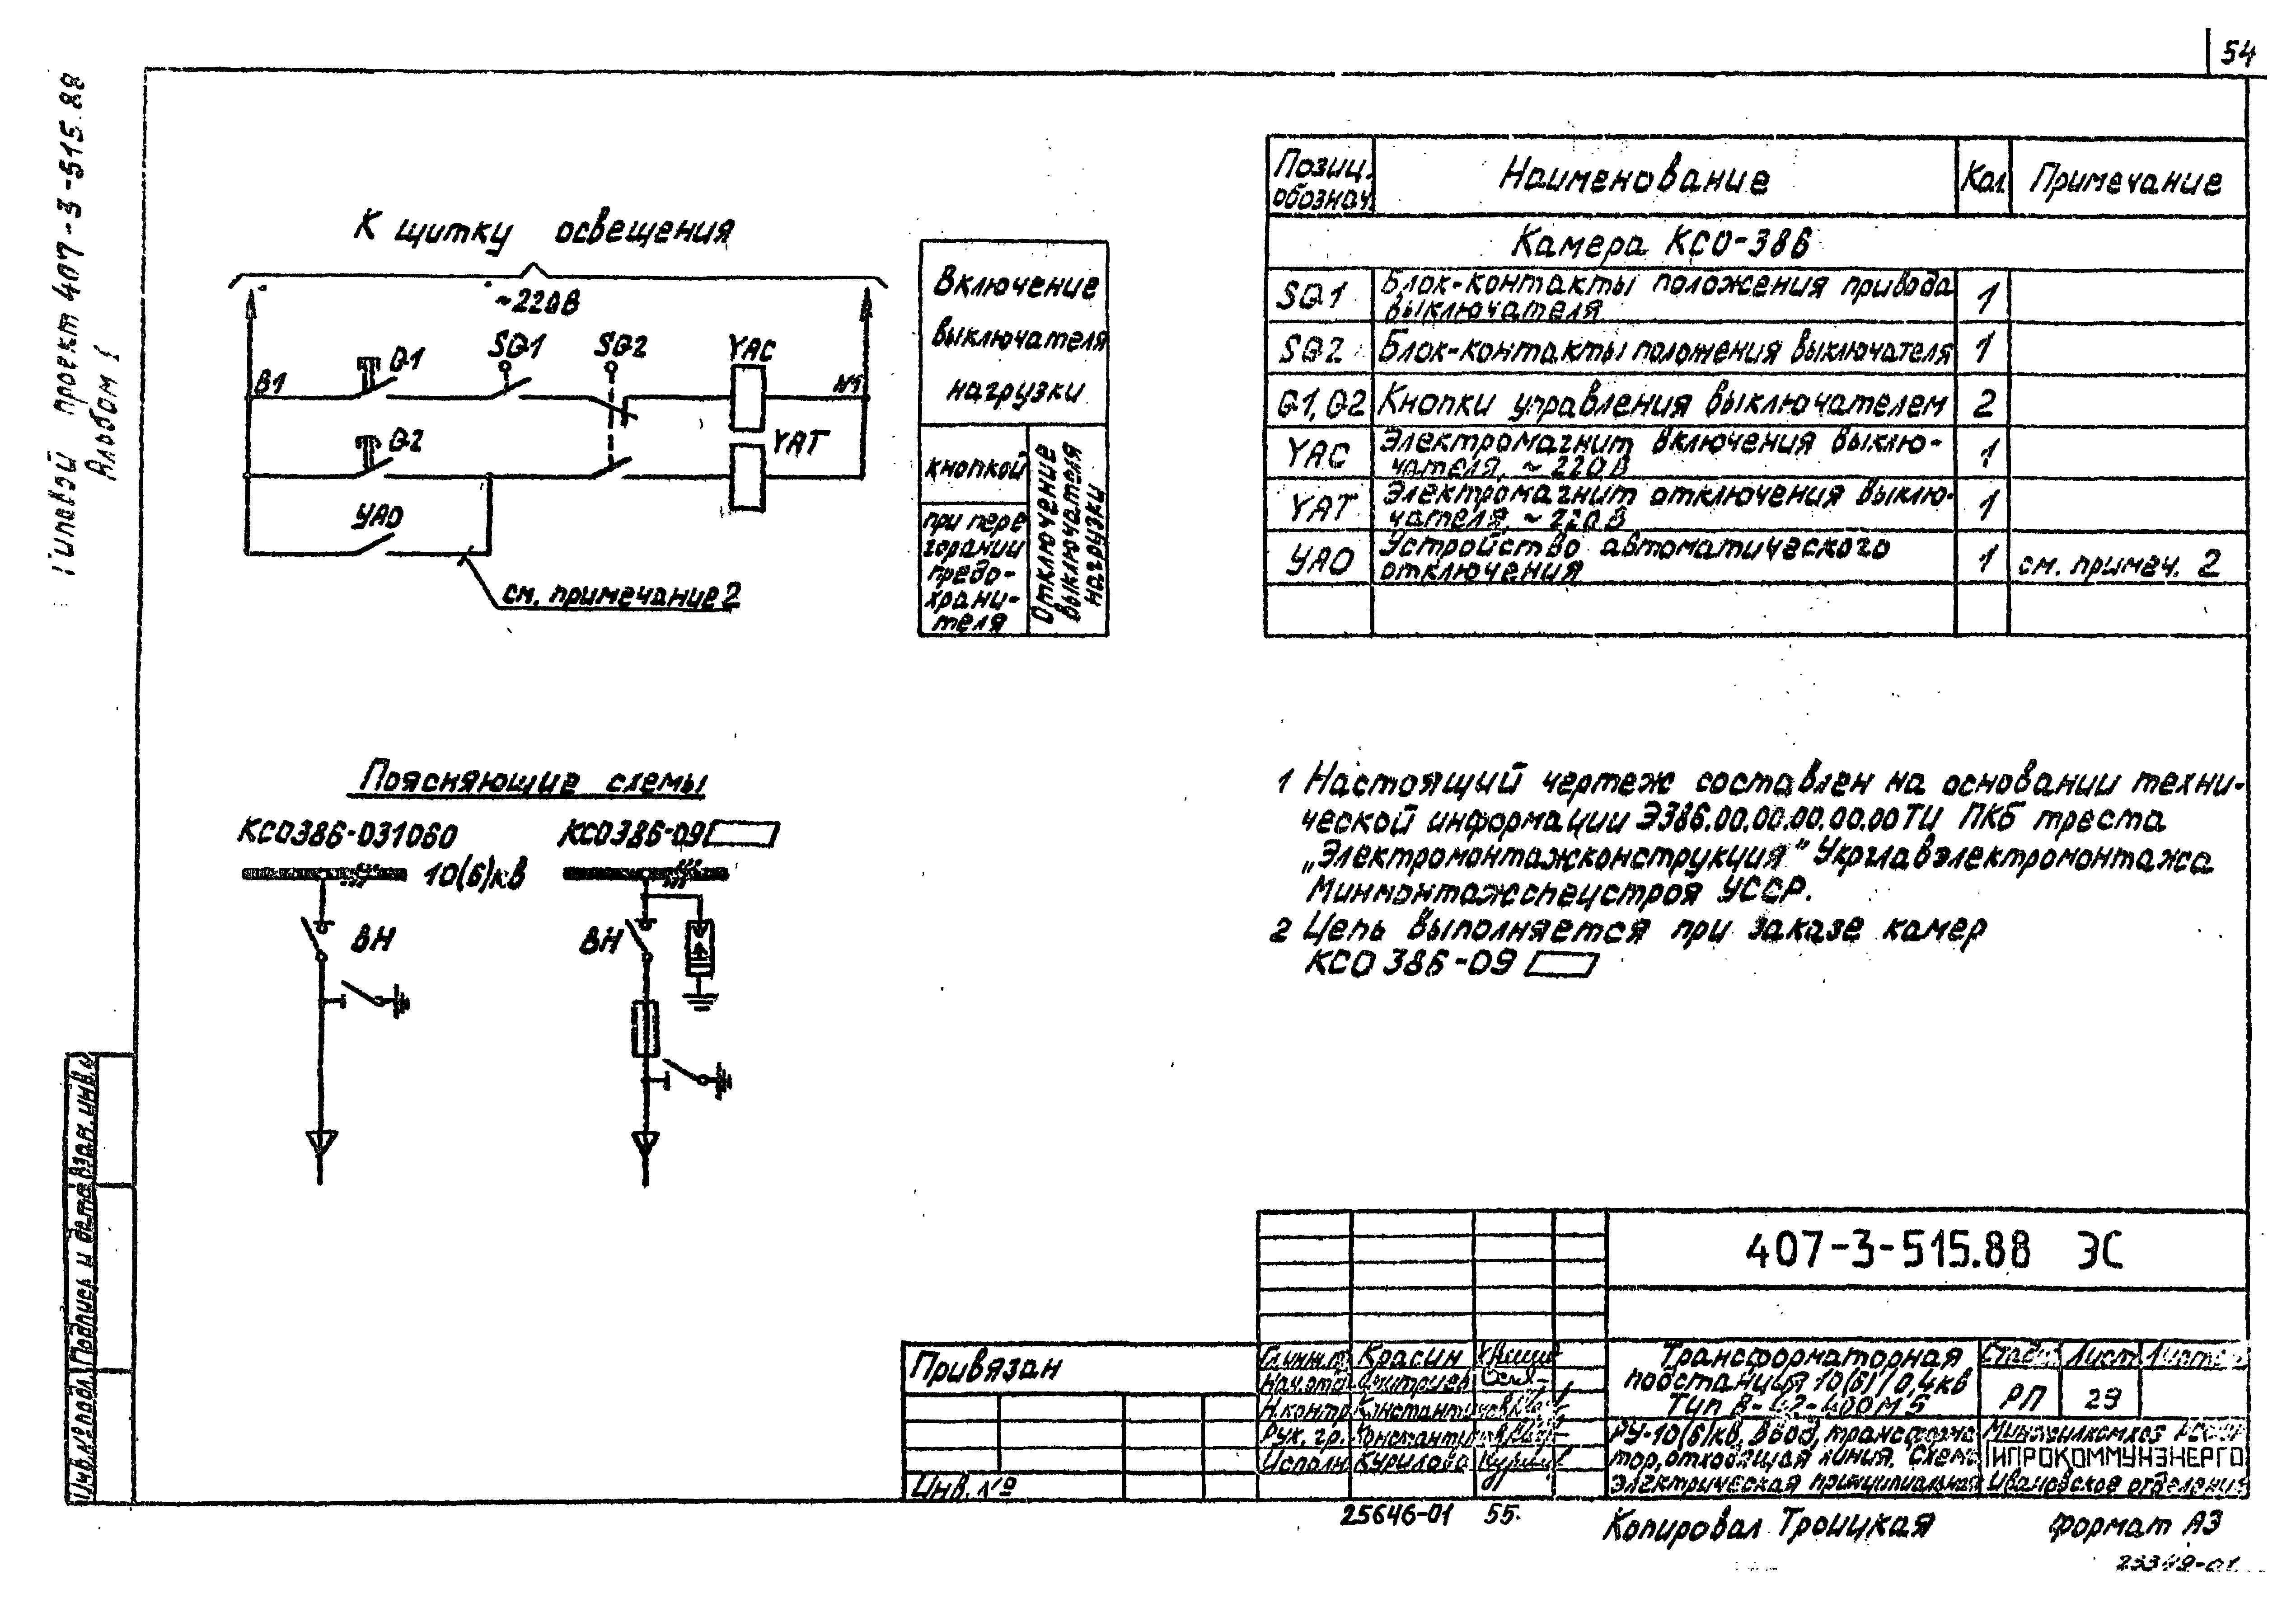 54
Типовой проект 407-3-515.88
Альбом 1
К щитку освещения
~220В
В1
Q1
SQ1
SQ2
YAC
N1
Q2
YAT
УАО
см. примечание 2
Включение
выключателя
нагрузки
кнопкой
при пере
горании
предо-
храни-
теля
Отключение
выключателя
нагрузки
Позиц. обознач.
Наименование
Кол
Примечание
Камера КСО-386
SQ1
Блок-контакты положения привода
выключателя
1
SQ2
Блок-контакты положения выключателя
1
Q1, Q2
Кнопки управления выключателем
2
YAC
Электромагнит включения выклю-
чателя, ~220В
1
YAT
Электромагнит отключения выклю-
чателя, ~220В
1
УАО
Устройство автоматического
отключения
1
см. примеч. 2
Поясняющие схемы
КСО386-031060
КСО386-09
10(6)кв
ВН
ВН
1 Настоящий чертеж составлен на основании техни-
ческой информации Э386.00.00.00.00.00ТИ ПКБ треста
„Электромонтажконструкция" Укрглавэлектромонтажа
Минмонтажспецстроя УССР.
2 Цепь выполняется при заказе камер
КСО 386-09
Взам. инв.№
Подпись и дата
Инв.№ подл.
Привязан
Инв. №
407-3-515.88 ЭС
Красин
Нач.отд Дмитриев
Н.контр Константинов
Рук. гр. Константинов
Исполн Курилова
Трансформаторная
подстанция 10(6)/0,4кв
Тип В-42-400М5
Лист
РП
29
РУ-10(6)кв. Ввод, трансформа
тор, отходящая линия. Схема
электрическая принципиальная
Минжилкомхоз РСФСР
ГИПРОКОММУНЭНЕРГО
Ивановское отделение
25646-01 55.
Копировал Троицкая
Формат А3